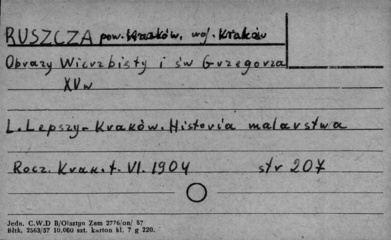 RUSZCZA pow. Kraków, woj. Kraków
Obrazy Wierzbisty i św Grzegorza
XV w
L. Lepszy - Kraków. Historia malarstwa
Rocz. Krak. t. VI. 1904 str 207
Jedn. C.W.D B/Olsztyn Zam 2776/on/ 57
Bltk. 2563/57 10.000 szt. karton kl. 7 g 220.